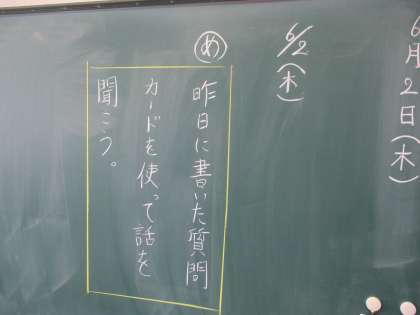 6月2日(木)
6/2(木)
め
昨日に書いた質問
カードを使って話を
聞こう。